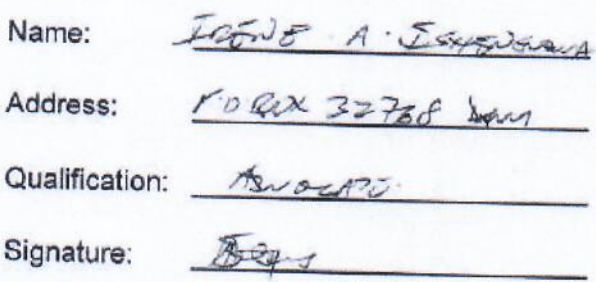 Name: IRENE A.
Address: P.O BOX 32768 DSM
Qualification: ADVOCATE
Signature: